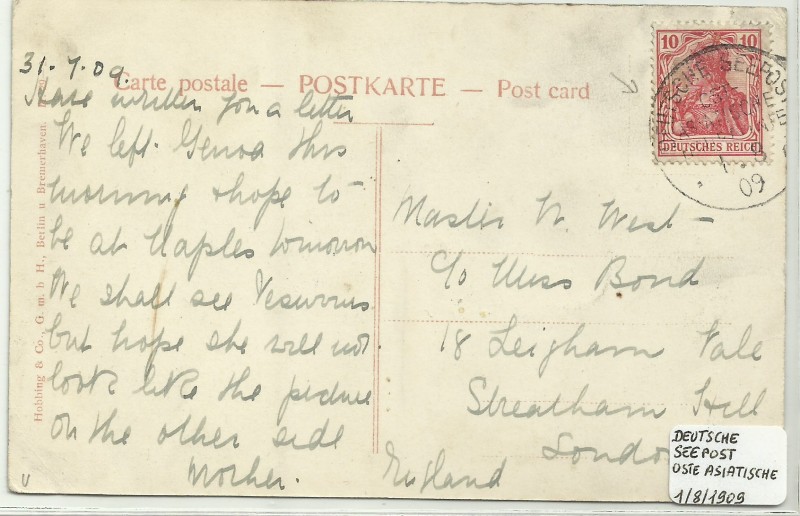 31.7.09.
Carte postale — POSTKARTE — Post card
Have written you a letter
We left Genoa this
morning & hope to
be at Naples tomorrow
We shall see Vesuvius
but hope she will not
look like the picture
on the other side
Mother.
Hobbing & Co., G. m. b H., Berlin u. Bremerhaven.
10 10
DEUTSCHES REICH
DEUTSCHE SEEPOST
1 8
09
Master W. West —
c/o Miss Bond
18 Leigham Vale
Streatham Hill
London
England
DEUTSCHE
SEEPOST
OSTE ASIATISCHE
1/8/1909
U